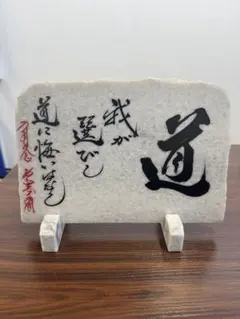 道
我が
選びし
道に悔いはなし